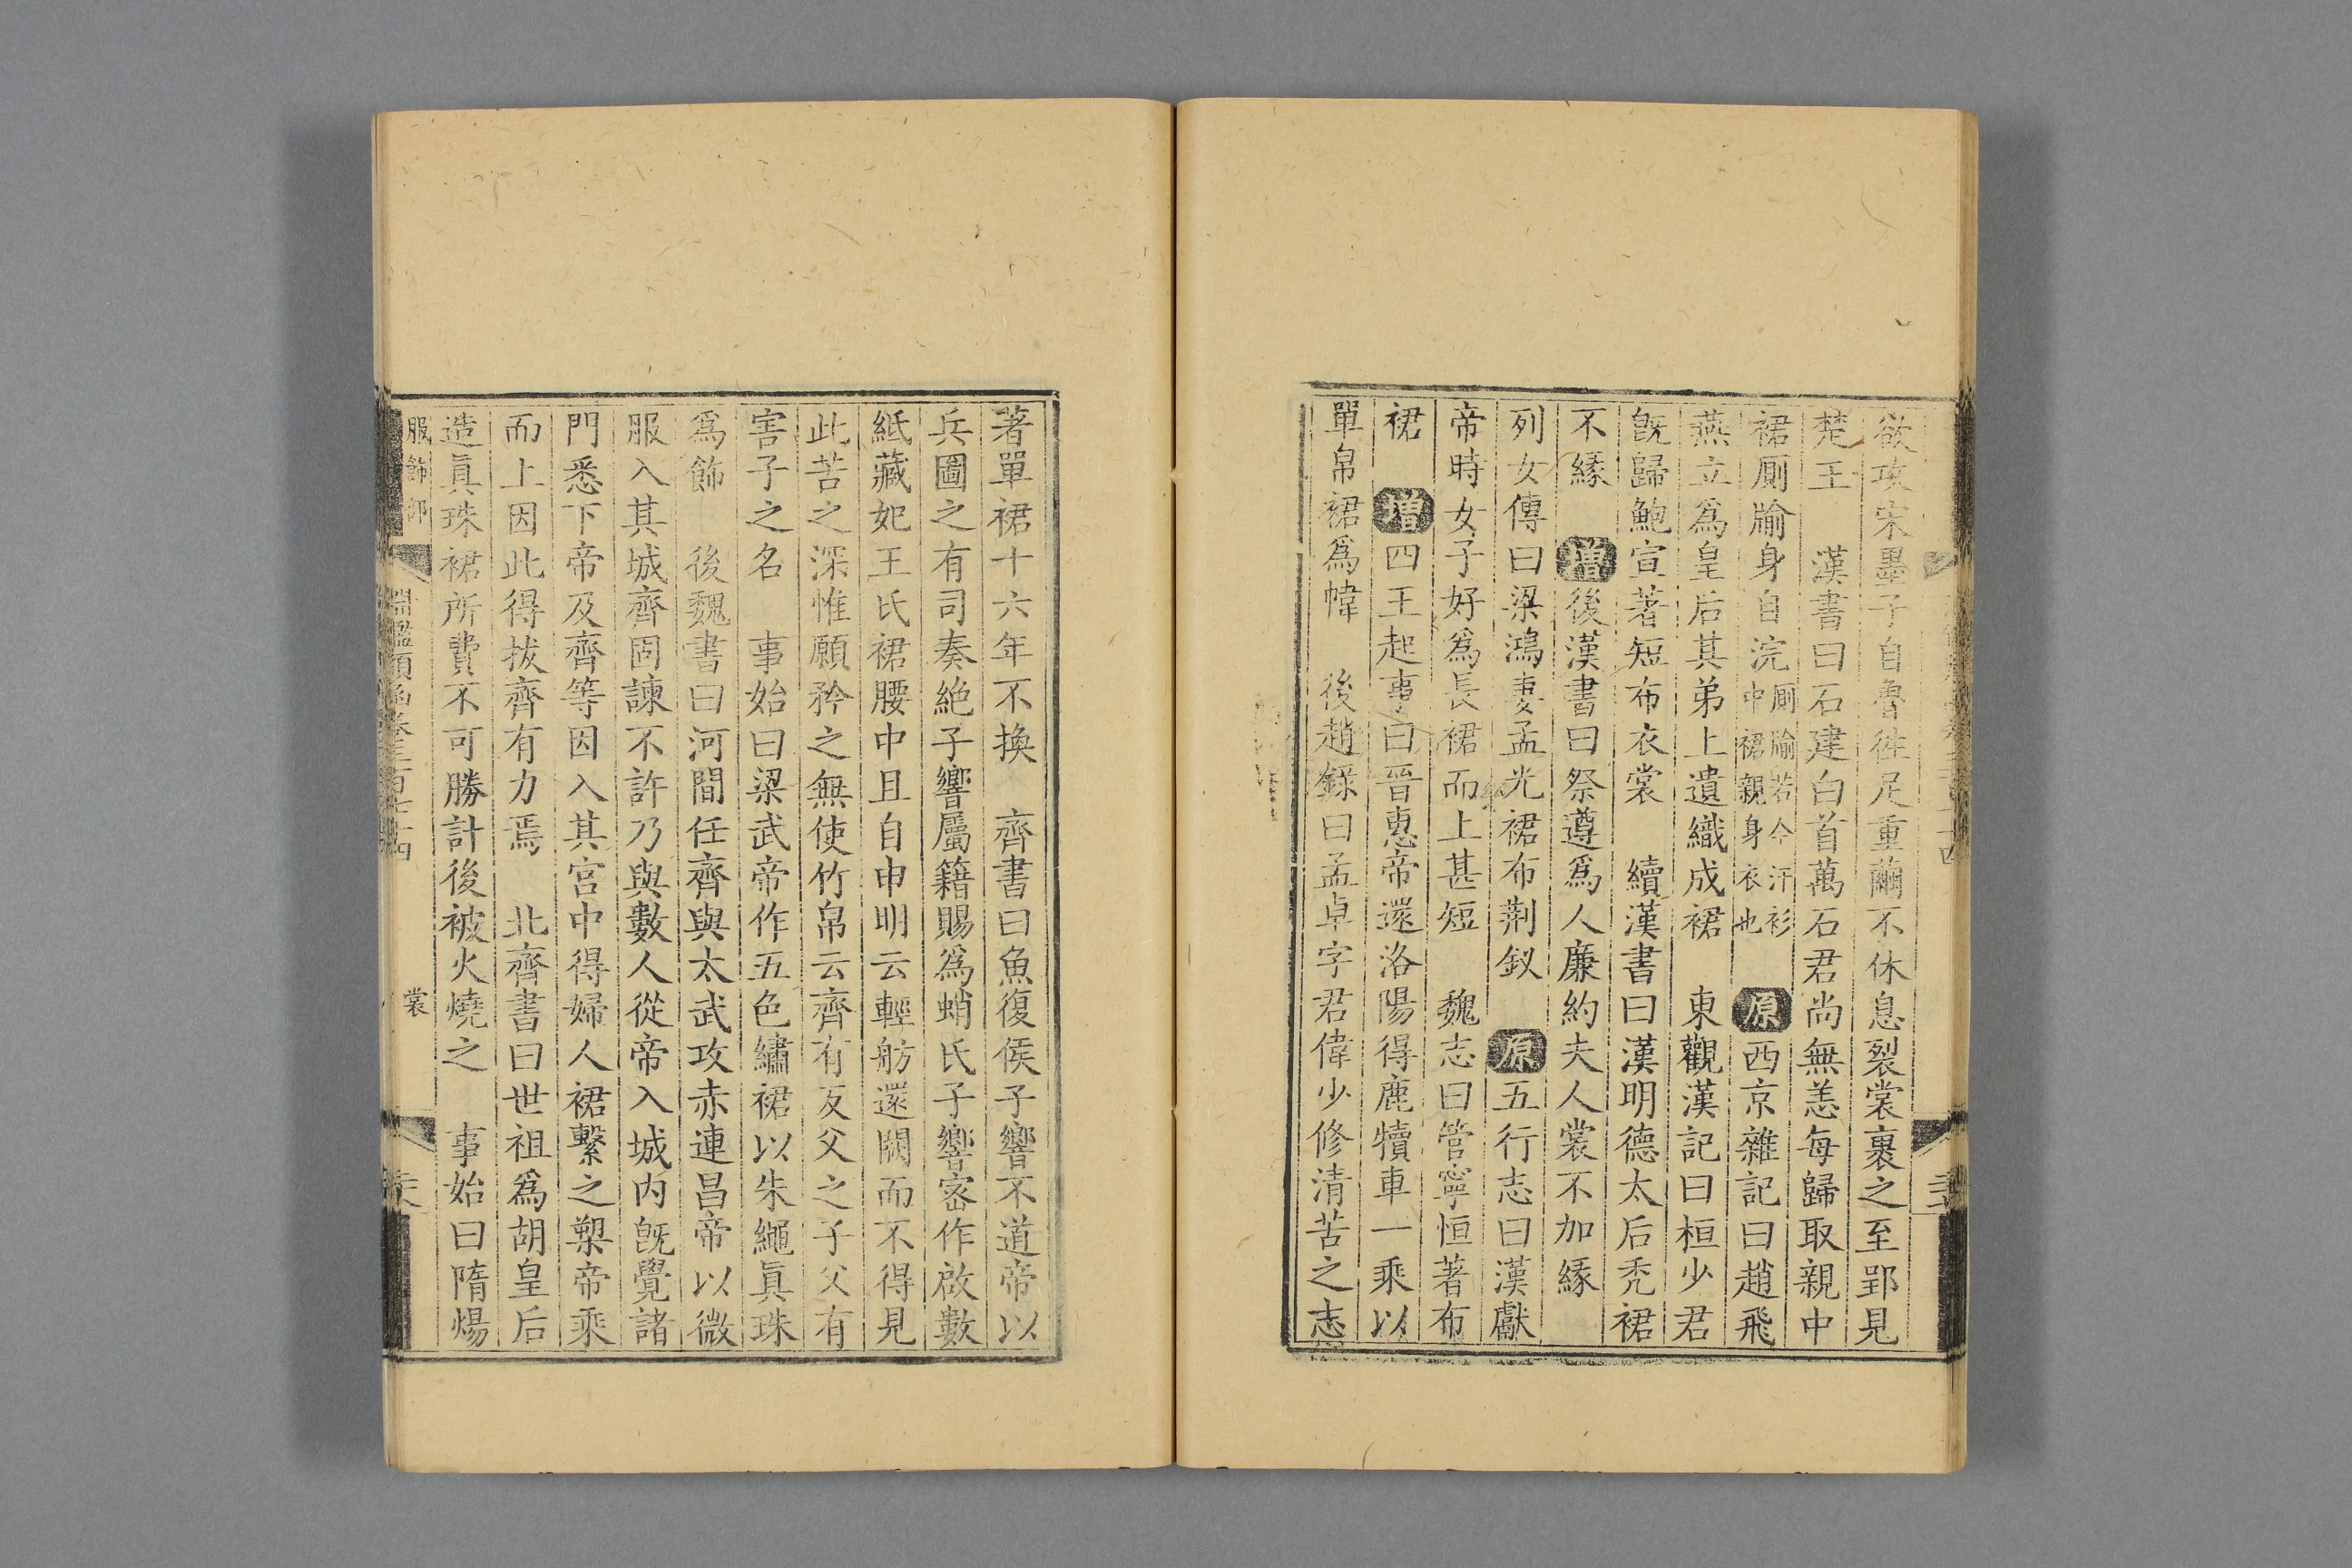 欲攻宋墨子自魯徃足重繭不休息裂裳裹之至郢見
楚王　漢書曰石建白首萬石君尚無恙每歸取親中
裙厠牏身自浣厠牏若今汗衫中裙親身衣也　原西京雜記曰趙飛
燕立爲皇后其弟上遺織成裙　東觀漢記曰桓少君
旣歸鮑宣著短布衣裳　續漢書曰漢明德太后禿裙
不緣　增後漢書曰祭遵爲人廉約夫人裳不加緣
列女傳曰梁鴻妻孟光裙布荆釵　原五行志曰漢獻
帝時女子好爲長裙而上甚短　魏志曰管寧恒著布
裙　增四王起事曰晉惠帝還洛陽得鹿犢車一乘以
單帛裙爲幃　後趙錄曰孟卓字君偉少修清苦之志
著單裙十六年不換　齊書曰魚復侯子響不道帝以
兵圖之有司奏絶子響屬籍賜爲蛸氏子響密作啟數
紙藏妃王氏裙腰中且自申明云輕舫還闕而不得見
此苦之深惟願矜之無使竹帛云齊有反父之子父有
害子之名　事始曰梁武帝作五色繡裙以朱繩眞珠
爲飾　後魏書曰河間任齊與太武攻赤連昌帝以微
服入其城齊固諫不許乃與數人從帝入城内旣覺諸
門悉下帝及齊等因入其宮中得婦人裙繫之槊帝乘
而上因此得拔齊有力焉　北齊書曰世祖爲胡皇后
造眞珠裙所費不可勝計後被火燒之　事始曰隋煬
服飾部　淵鑑類函卷三百七十四　裳